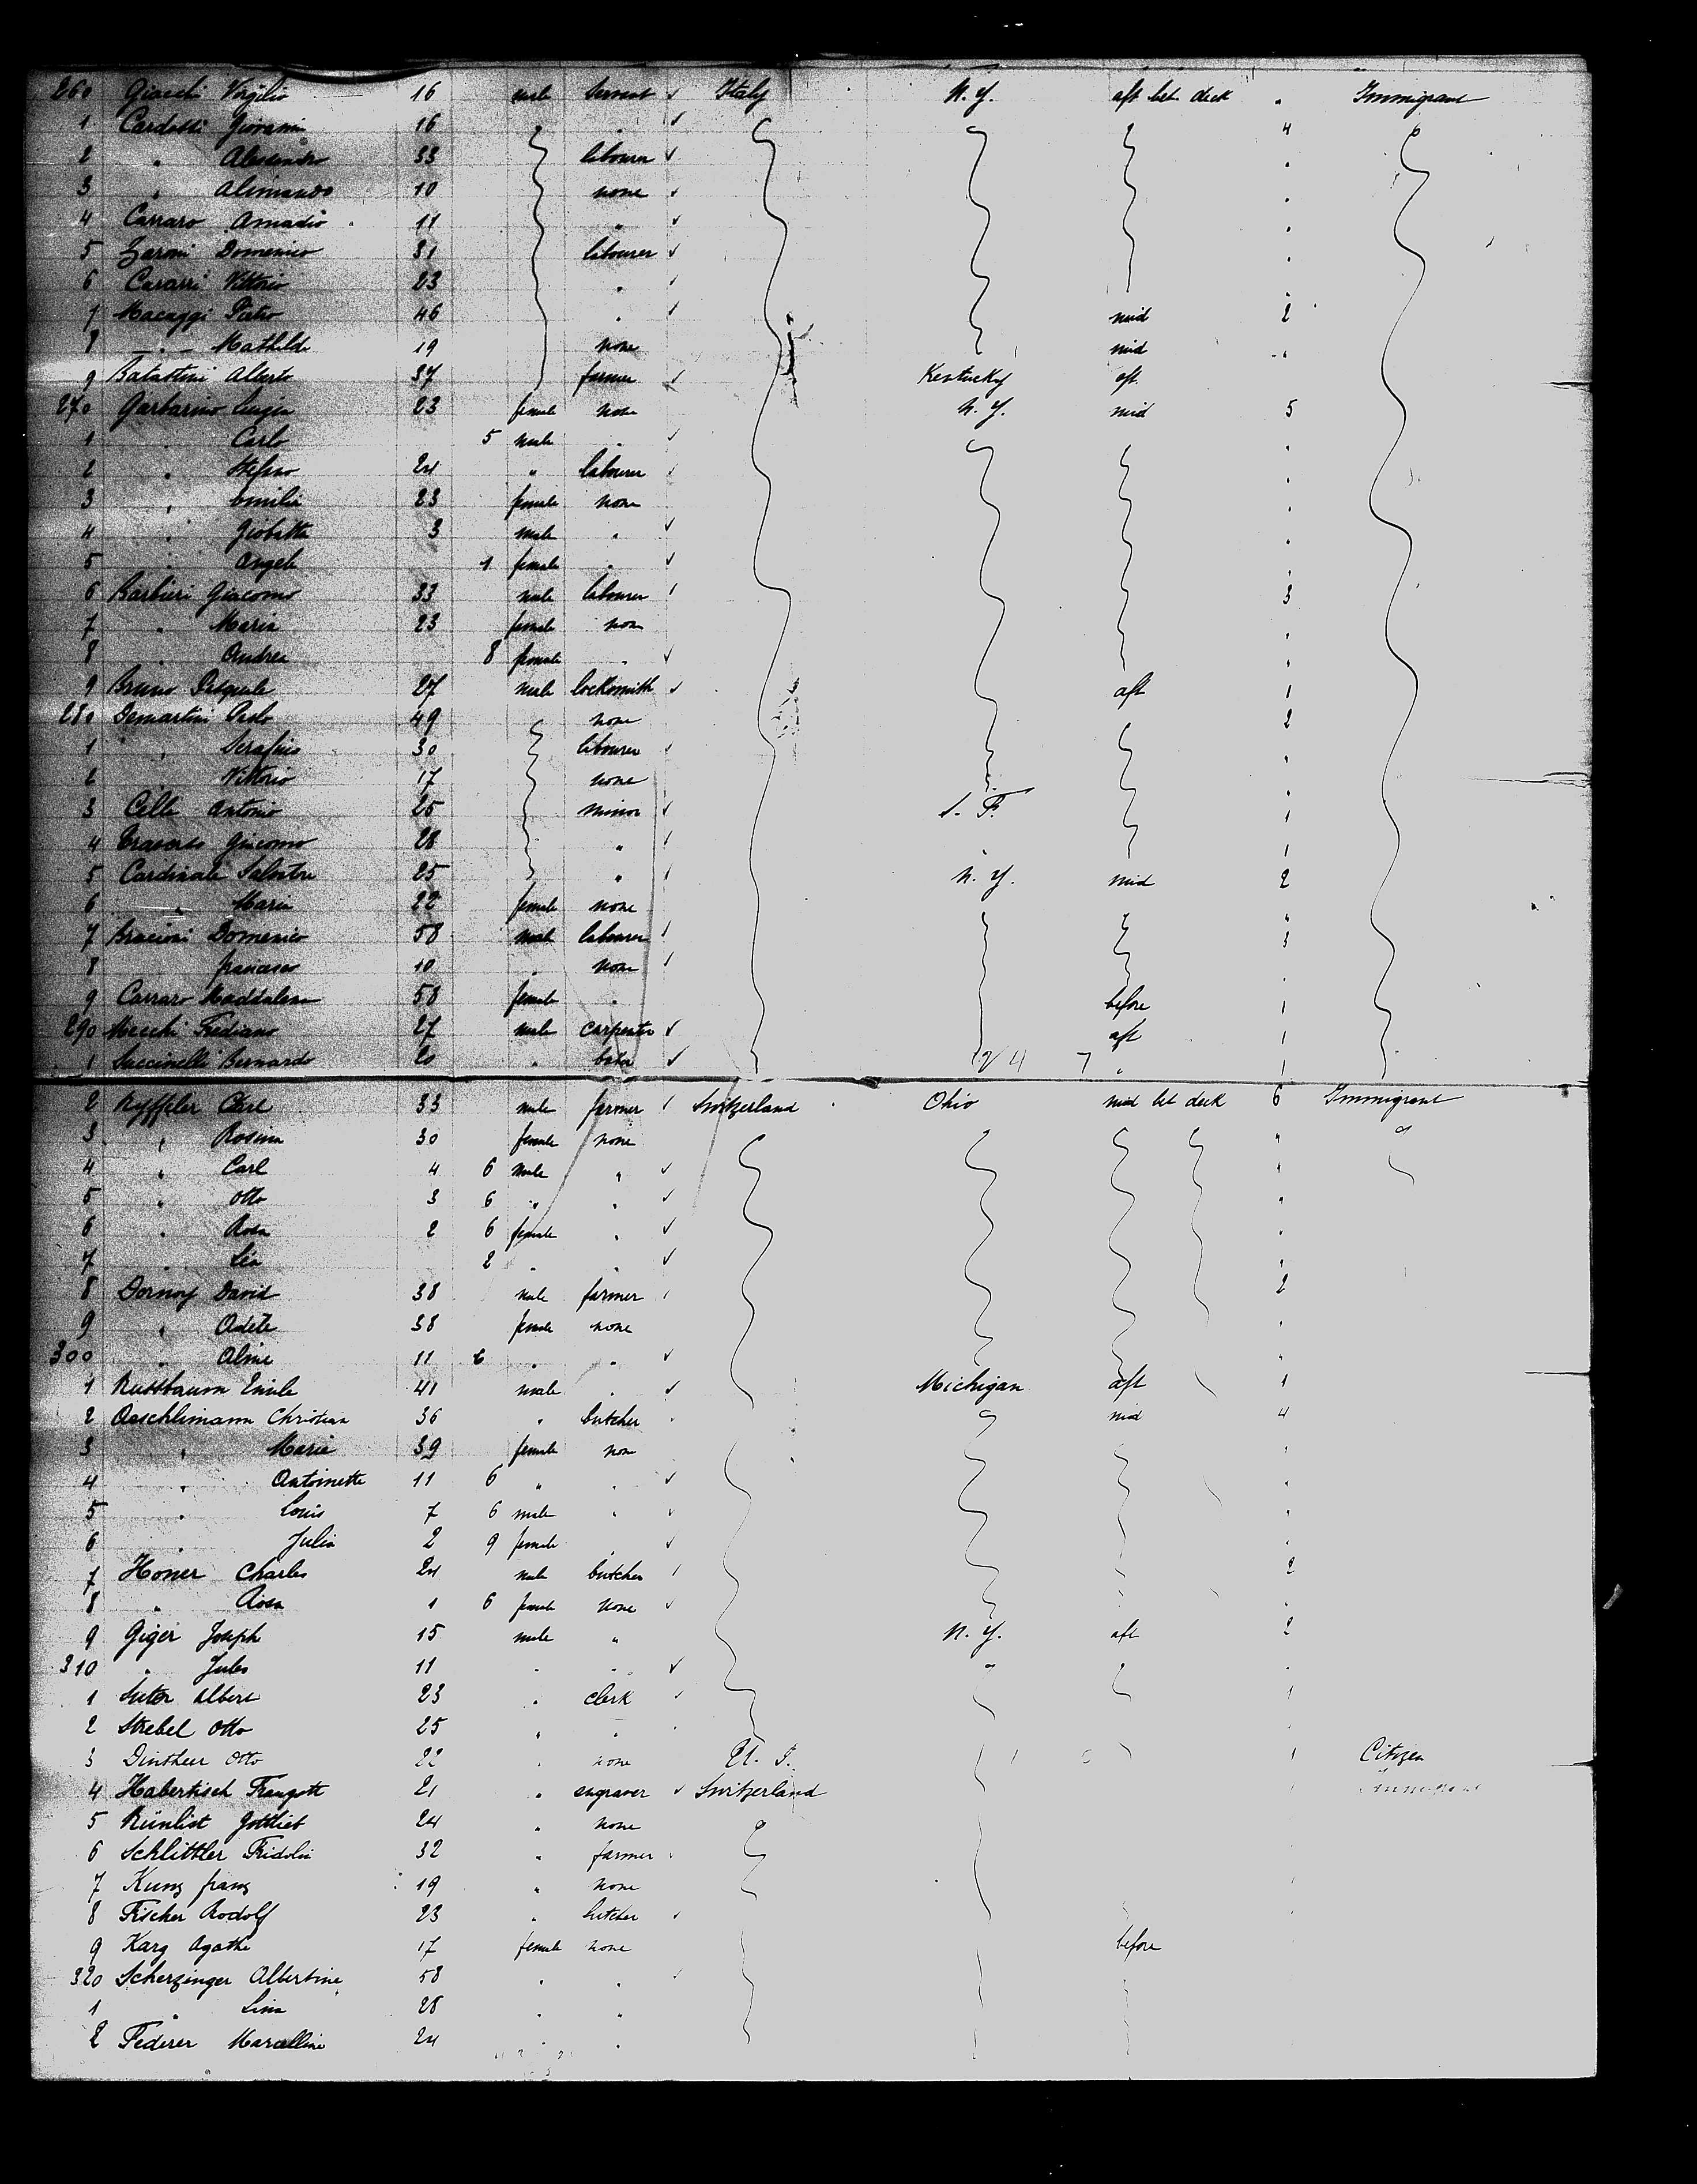 260 Giacchi Virgilio 16 male Servant ✓ Italy N. Y. aft bet deck " Immigrant
1 Cardetti Giovanni 16 " ✓ 4
2 " Alessandro 33 labourer ✓ "
3 " Alimando 10 none ✓ "
4 Carraro Amadio 11 " ✓ "
5 Zaroni Domenico 31 labourer ✓ "
6 Cavarri Vittorio 23 " "
7 Macaggi Pietro 46 " mid 2
8 " Mathilde 19 none mid "
9 Batastini Alberto 37 farmer ✓ Kentucky aft
270 Garbarino Luigia 23 female none N. Y. mid 5
1 " Carlo 5 male " ✓ "
2 " Stefano 24 " labourer "
3 " Emilia 23 female none "
4 " Giobatta 3 male " ✓ "
5 " Angela 1 female " ✓ "
6 Barbieri Giacomo 33 male labourer 3
7 " Maria 23 female none "
8 " Andrea 8 female " ✓ "
9 Bruno Pasquale 27 male locksmith ✓ aft 1
280 Demartini Paolo 49 none 2
1 " Serafino 30 labourer "
2 " Vittorio 17 none "
3 Celle Antonio 25 minor ✓ S. F. 1
4 Giacomo 28 " " 1
5 Cardinale Salvatore 25 " N. Y. mid 2
6 " Maria 22 female none "
7 Bracioni Domenico 58 male labourer 3
8 francesco 10 " none "
9 Carraro Maddalena 58 female " before 1
290 Micchi Frediano 27 male carpenter ✓ aft 1
1 Succinelli Bernardo 20 " baker ✓ " 1
2 Ryffeler Carl 33 male farmer Switzerland Ohio mid bet deck 6 Immigrant
3 " Rosina 30 female none "
4 " Carl 4 6 male " ✓ "
5 " Otto 3 6 " " ✓ "
6 " Rosa 2 6 female " ✓ "
7 " Léa 2 " " ✓ "
8 Dornoy David 38 male farmer 2
9 " Adèle 38 female none "
300 " Aline 11 6 " " ✓ "
1 Nussbaum Emile 41 male " ✓ Michigan aft 1
2 Aeschlimann Christian 36 " butcher mid 4
3 " Marie 39 female none "
4 " Antoinette 11 6 " " ✓ "
5 " Louis 7 6 male " "
6 " Julia 2 9 female " ✓ "
7 Honer Charles 24 male butcher 2
8 " Rosa 1 6 female none ✓ "
9 Giger Joseph 15 male " N. Y. aft 2
310 " Jules 11 " " ✓ " "
1 Suter Albert 23 " clerk 1
2 Strebel Otto 25 " "
3 Dintheer Otto 22 " none U. S. 1 Citizen
4 Habertisch Traugott 21 " engraver ✓ Switzerland Immigrant
5 Rünlist Gottlieb 24 " none
6 Schlittler Fridolin 32 " farmer
7 Kunz franz 19 " none
8 Fischer Rodolf 23 " butcher
9 Karg Agathe 17 female none before
320 Scherzinger Albertine 58 " "
1 " Lina 28 " "
2 Federer Marcelline 24 " "